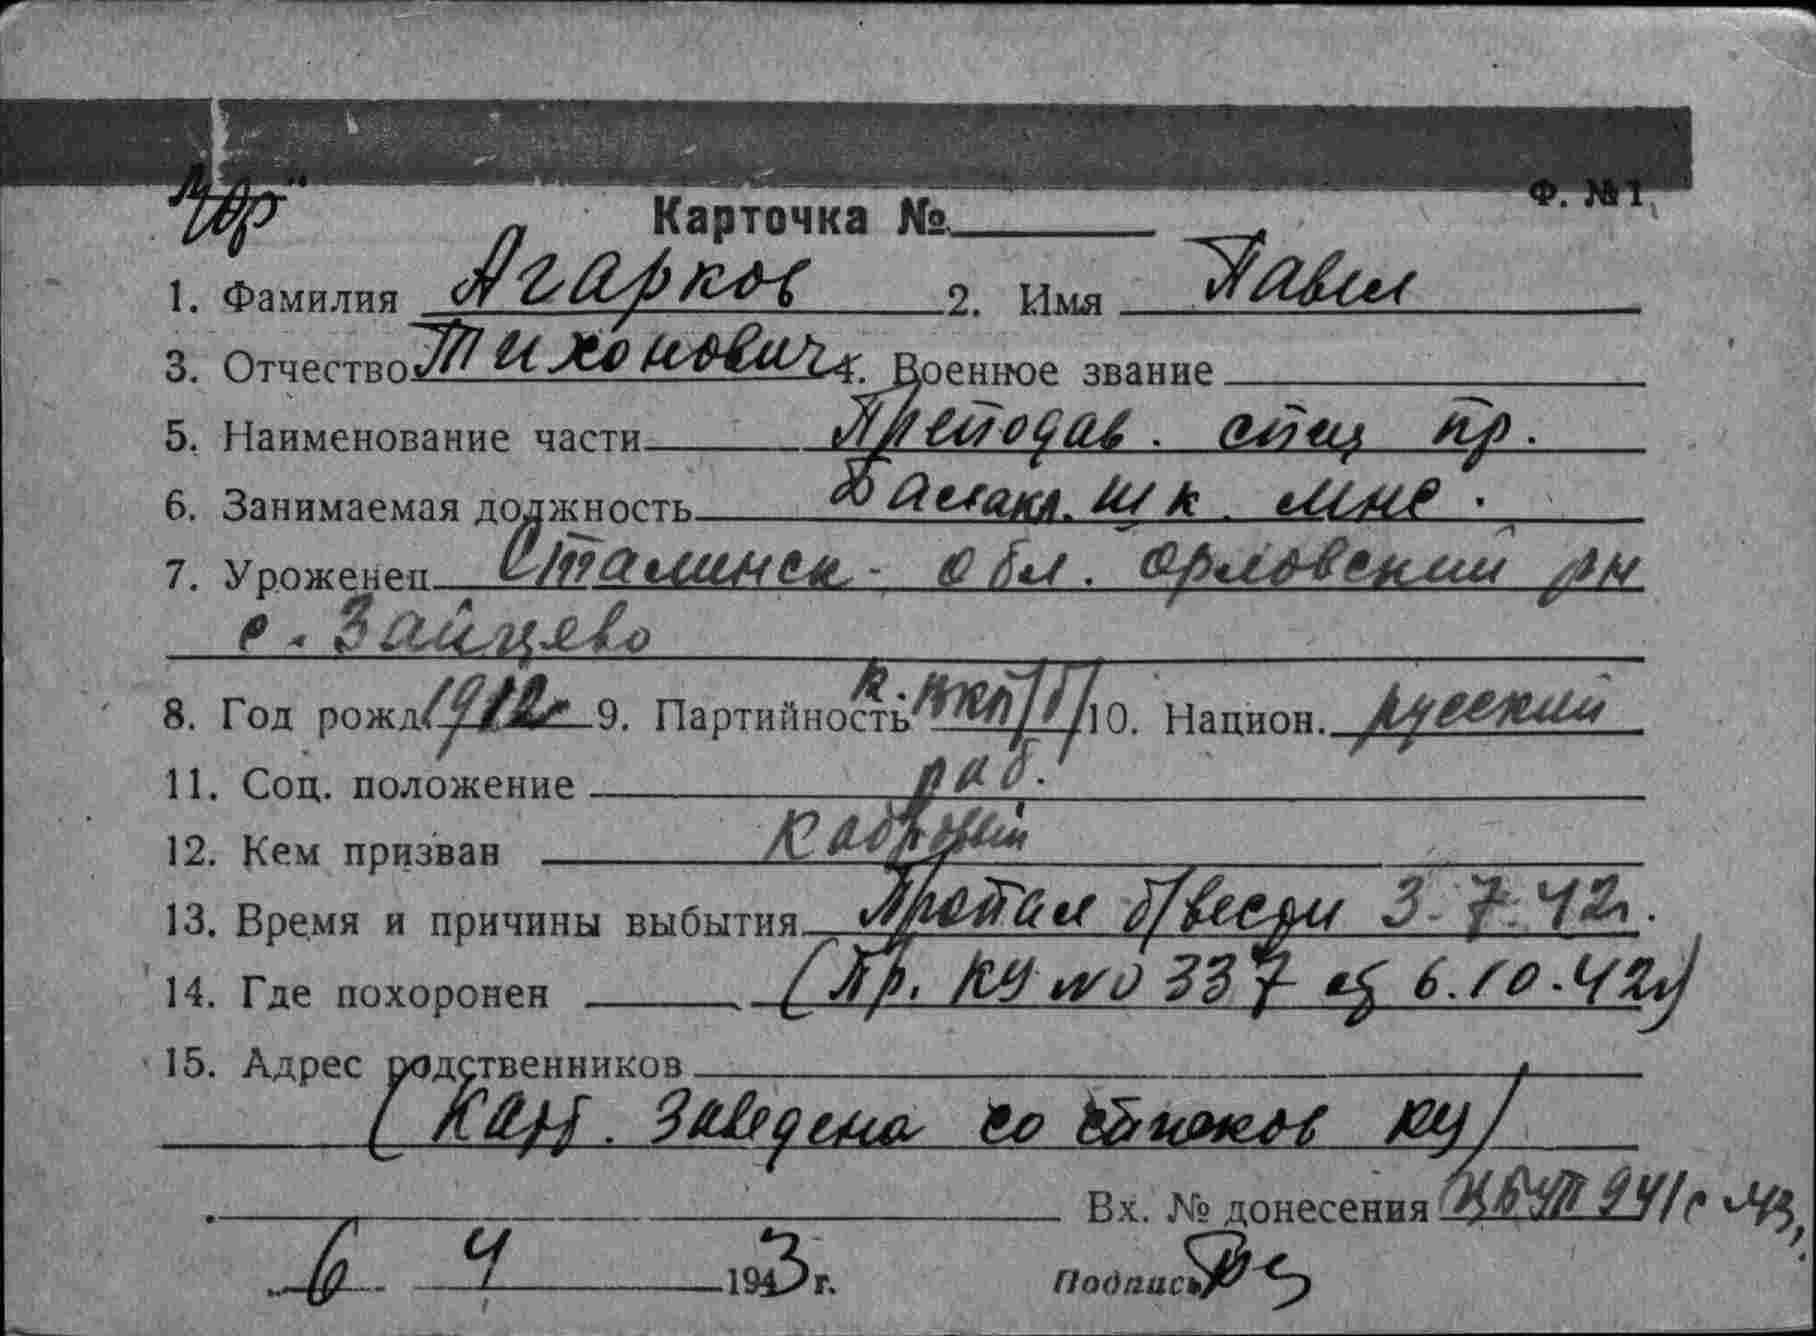 Ф. № 1
Карточка №
1. Фамилия Агарков 2. Имя Павел
3. Отчество Тихонович 4. Военное звание
5. Наименование части Преподав. спец пр.
6. Занимаемая должность Балакл. шк. млнс.
7. Уроженец Сталинск. обл. Орловский рн
с. Зайцево
8. Год рожд. 1912г 9. Партийность к. ВКП/б/ 10. Национ. русский
11. Соц. положение раб.
12. Кем призван Кадровый
13. Время и причины выбытия Пропал б/вести 3.7.42г.
14. Где похоронен (Пр. КУ № 0337 от 6.10.42г)
15. Адрес родственников
(Карт. заведена со списков КУ)
Вх. № донесения 941с 43
6 4 1943 г. Подпись